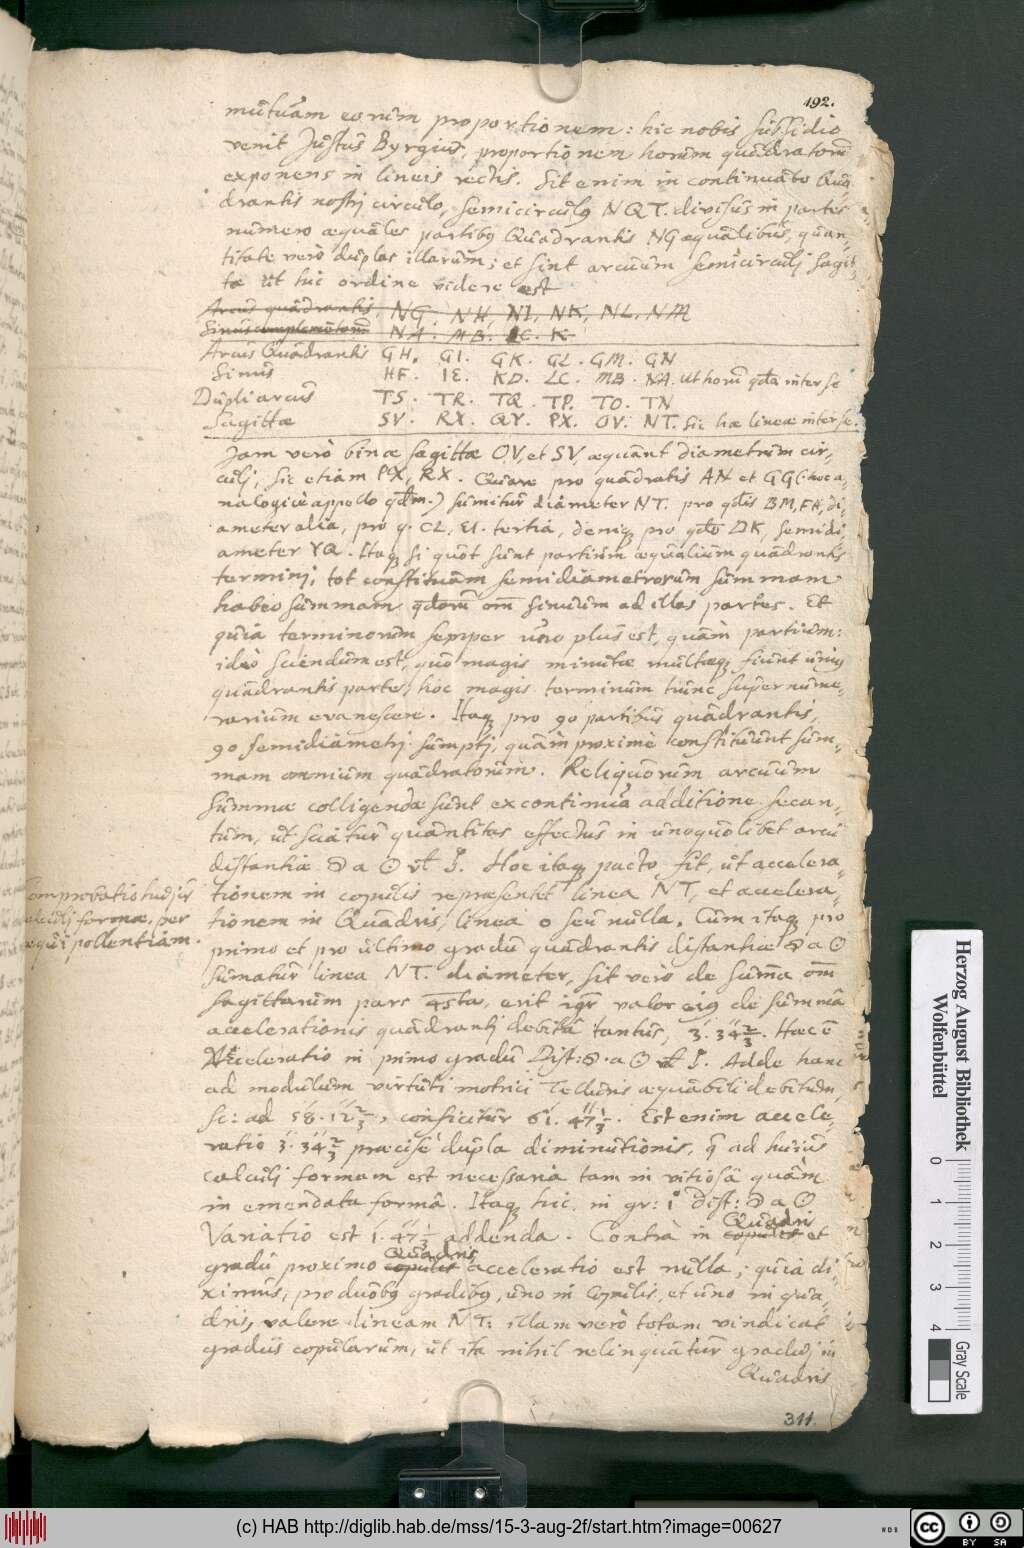 192.
mutuam eorum proportionem: hic nobis subsidio
venit Justus Byrgius, proportionem horum quadratorum
exponens in lineis rectis. Sit enim in continuato Qua
drantis nostri circulo, semicirculus NQT. divisus in partes
numero æquales partibus Quadrantis NG æqualibus, quan-
titate verò duplas illarum; et sint arcuum semicirculj sagit
tæ ut hic ordine videre est
Arcus quadrantis, NG. NH, NI, NK, NL. NM
Sinus complementorum NA. MB. LC. K
Arcus Quadrantis GH. GI. GK. GL. GM. GN
Sinus HF. IE. KD. LC. MB. NA. ut horum qta inter se
Dupli arcus TS. TR. TQ. TP. TO. TN
Sagittæ SV. RX. QY. PX. OV. NT. Sic hæ lineæ inter se.
Jam verò binæ sagittæ OV, et SV, æquant diametrum cir-
culj, sic etiam PX, RX. Quare pro quadratis AN et GG (hoc a-
nalogicè appello qdtm.) sumitur diameter NT. pro qdtis BM, FH, di-
ameter alia, pro q. CL, EI. tertia, deniq pro qdto DK, semidi-
ameter YQ. Itaq si quot sunt partium æqualium quadrantis
terminj, tot constituam semidiametrorum summam
habeo summam qdorum om sinuum ad illas partes. Et
quia terminorum semper uno plus est, quàm partium:
ideò sciendum est, quò magis minutæ multæq fiunt unius
quadrantis partes, hoc magis terminum tunc supernume-
rarium evanescere. Itaq pro 90 partibus quadrantis,
90 semidiametrj sumptj, quàm proximè constituunt sum-
mam omnium quadratorum. Reliquorum arcuum
summæ colligendæ sunt ex continua additione secan-
tum, ut sciatur quantitas effectus in unoquolibet arcu
distantiæ ☽ a ☉ vel ☍. Hoc itaq pacto fit, ut accelera-
tionem in copulis repræsentet linea NT, et accelera-
tionem in Quadris, linea o seu nulla. Cum itaq pro
primo et pro ultimo gradu quadrantis distantiæ ☽ a ☉
sumatur linea NT. diameter, sit verò de suma om
sagittarum pars 45ta, erit igr valor eius de summa
accelerationis quadrantj debita tantus, 3. 34 2/3. Hæc ē
Acceleratio in primo gradu Dist: ☽ a ☉ vel ☍. Adde hanc
ad modulum virtuti motrici Telluris æquabili debitum,
sc: ad 58. 12 2/3, conficitur 61. 47 1/3. Est enim accele-
ratio 3. 34 2/3 præcisè dupla diminutionis, q ad huius
calculj formam est necessaria tam in vitiosa quàm
in emendata formâ. Itaq hic in gr: 1 Dist: ☽ a ☉
Variatio est 1. 47 1/3 addenda. Contra in copulis Quadris et
gradu proximo copulis Quadris acceleratio est nulla; quia di-
ximus, pro duobus gradibus, uno in Copulis, et uno in qua-
dris, valere lineam NT: illam verò totam vindicat
gradus copularum, ut ita nihil relinquatur graduj in
Quadris
Comprobatio hujus
calculj formæ, per
æquipollentiam.
311.
Herzog August Bibliothek
Wolfenbüttel
0 1 2 3 4
Gray Scale
(c) HAB http://diglib.hab.de/mss/15-3-aug-2f/start.htm?image=00627
WDB
cc BY SA